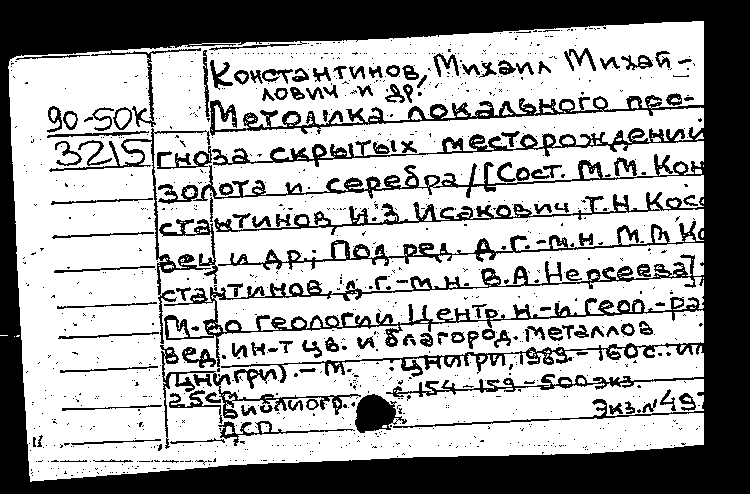 Константинов, Михаил Михай-
лович и др.
90-50К
Методика локального про-
3215 гноза скрытых месторождений
золота и серебра / [Сост. М.М. Кон
стантинов, И.З. Исакович, Т.Н. Косо
вец и др.; Под ред. д.г.-м.н. М.М Ко
стантинов, д.г.-м.н. В.А. Нерсеева];
М-во геологии Центр. н.-и. геол.-раз
вед. ин-т цв. и благород. металлов
(ЦНИГРИ). - М. : ЦНИГРИ, 1989. - 160 с.: ил
25см.
Библиогр.: с. 154-159. - 500 экз.
ДСП.
Экз. N 497